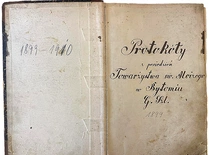 1899-1910
Protokóły
z posiedzeń
Towarzystwa św. Alojzego
w Bytomiu
G. Śl.
1899